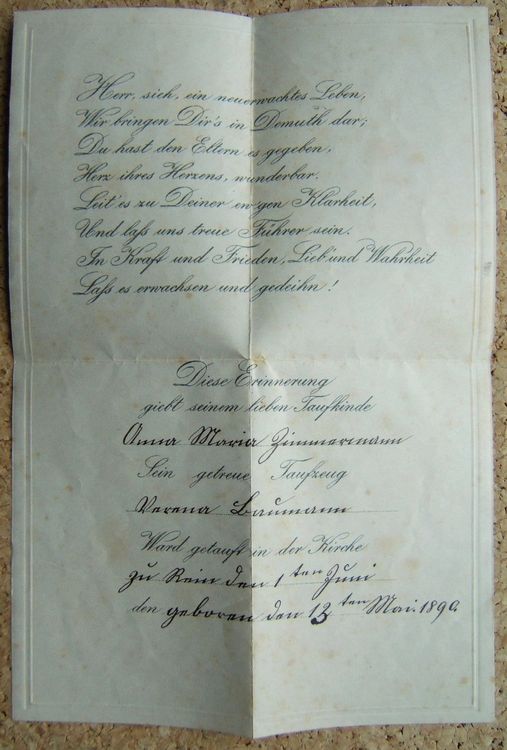 Herr, sieh, ein neuerwachtes Leben,
Wir bringen Dir's in Demuth dar;
Du hast den Eltern es gegeben,
Herz ihres Herzens, wunderbar.
Leit' es zu Deiner ew'gen Klarheit,
Und lass uns treue Führer sein.
In Kraft und Frieden, Lieb' und Wahrheit
Lass es erwachsen und gedeihn!
Diese Erinnerung
giebt seinem lieben Taufkinde
Anna Maria Zimmermann
Sein getreue Taufzeug
Verena Baumann
Ward getauft in der Kirche
zu Rein den 1ten Juni
den geboren den 12ten Mai. 1890.